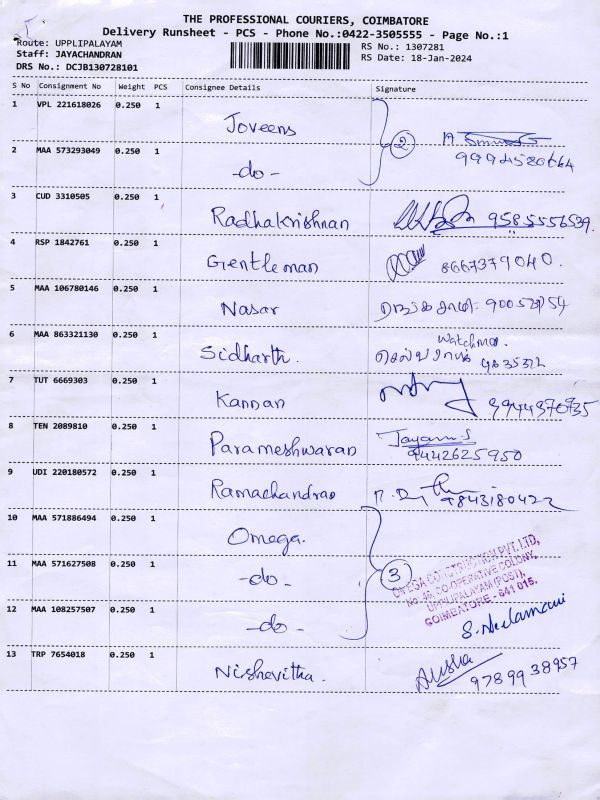 THE PROFESSIONAL COURIERS, COIMBATORE
Delivery Runsheet - PCS - Phone No.:0422-3505555 - Page No.:1
Route: UPPLIPALAYAM
Staff: JAYACHANDRAN
DRS No.: DCJB130728101
RS No.: 1307281
RS Date: 18-Jan-2024
S No Consignment No Weight PCS Consignee Details Signature
1 VPL 221618026 0.250 1 Joveens
2
9994520664
2 MAA 573293049 0.250 1 -do-
3 CUD 3310505 0.250 1 Radhakrishnan 9585556539.
4 RSP 1842761 0.250 1 Gentleman 8667379040.
5 MAA 106780146 0.250 1 Nasar
6 MAA 863321130 0.250 1 Sidharth.
Watchman.
7 TUT 6669303 0.250 1 Kannan 9944370735
8 TEN 2089810 0.250 1 Parameshwaran Jayam.S
9442625950
9 UDI 220180572 0.250 1 Ramachandran 9843180422
10 MAA 571886494 0.250 1 Omega.
11 MAA 571627508 0.250 1 -do-
3
OMEGA CONSTRUCTION PVT. LTD,
No 46, CO-OPERATIVE COLONY,
UPPILIPALAYAM (POST),
COIMBATORE - 641 015.
12 MAA 108257507 0.250 1 -do- S. Neelamani
13 TRP 7654018 0.250 1 Nishevitha. Anusha
9789938957